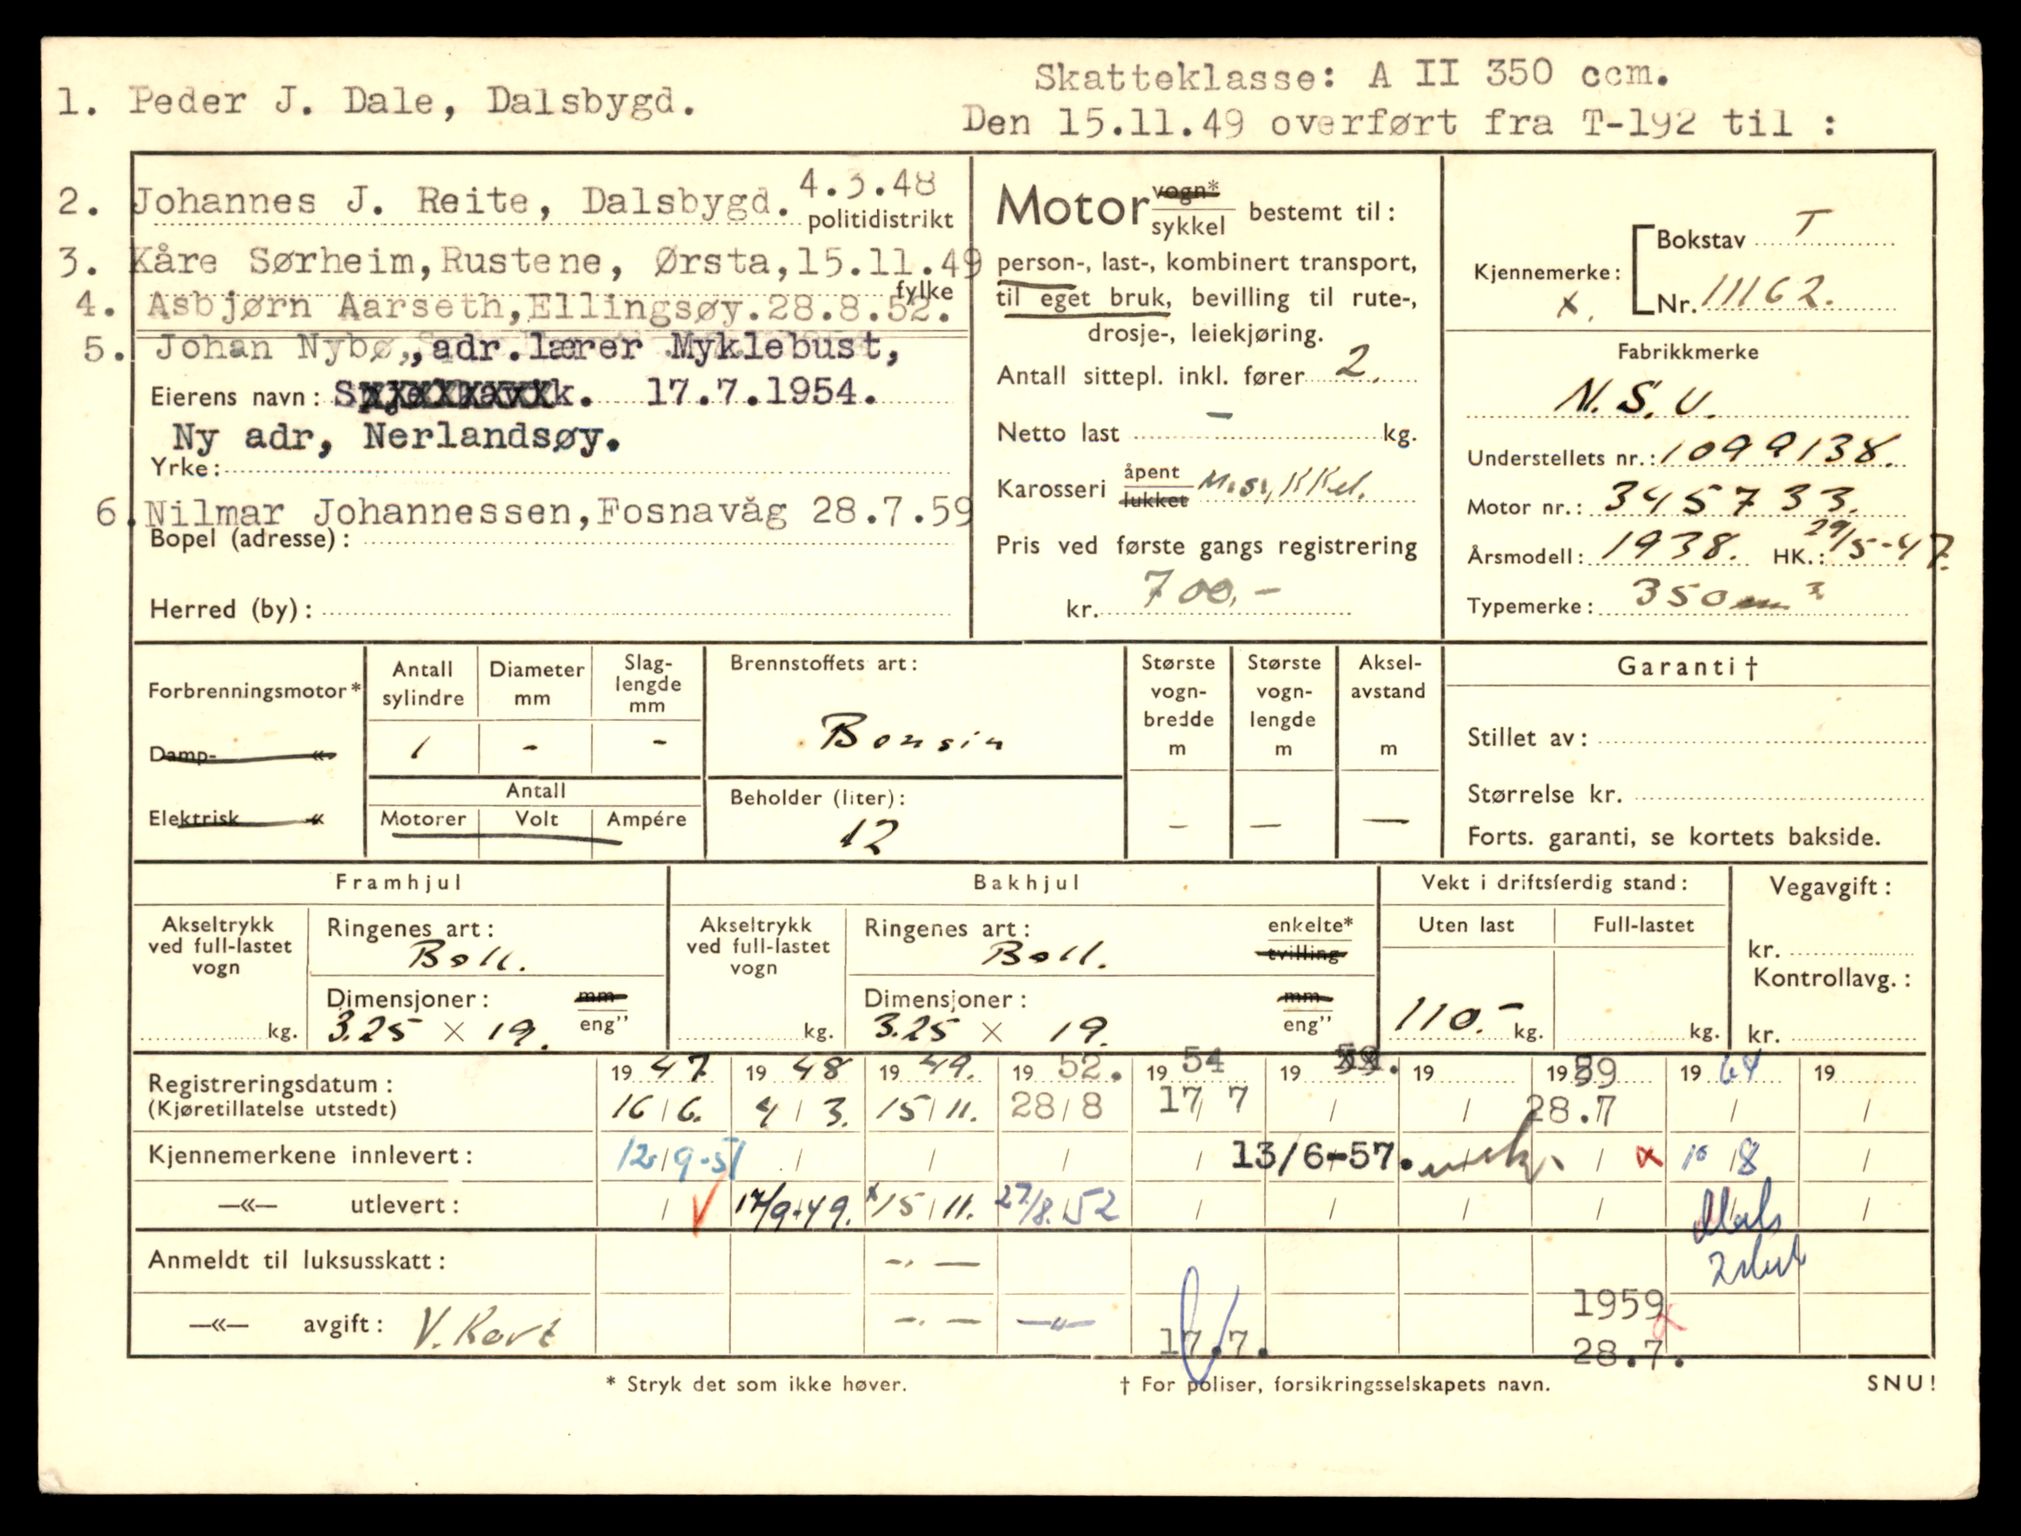 Skatteklasse: A II 350 ccm.
1. Peder J. Dale, Dalsbygd.
Den 15.11.49 overført fra T-192 til :
2. Johannes J. Reite, Dalsbygd. 4.3.48
politidistrikt
3. Kåre Sørheim, Rustene, Ørsta, 15.11.49
fylke
4. Asbjørn Aarseth, Ellingsøy. 28.8.52.
5. Johan Nybø, adr. lærer Myklebust,
Eierens navn: 17.7.1954.
Ny adr, Nerlandsøy.
Yrke:
6. Nilmar Johannessen, Fosnavåg 28.7.59
Bopel (adresse):
Herred (by):
Motor vogn* sykkel bestemt til:
person-, last-, kombinert transport,
til eget bruk, bevilling til rute-,
drosje-, leiekjøring.
Antall sittepl. inkl. fører 2.
Netto last - kg.
Karosseri åpent lukket
Pris ved første gangs registrering
kr. 700,-
Bokstav T
Kjennemerke:
x.
Nr. 11162.
Fabrikkmerke
N.S.U.
Understellets nr.: 1099138.
Motor nr.: 345733.
Årsmodell: 1938. HK.: 29/5-47.
Typemerke: 350
Forbrenningsmotor*
Damp- «
Elektrisk «
Antall sylindre
1
Diameter mm
-
Slag-lengde mm
-
Antall
Motorer Volt Ampére
Brennstoffets art:
Bensin
Beholder (liter):
12
Største vogn-bredde m
-
Største vogn-lengde m
-
Aksel-avstand m
-
Garanti †
Stillet av:
Størrelse kr.
Forts. garanti, se kortets bakside.
Framhjul
Akseltrykk ved full-lastet vogn
kg.
Ringenes art:
Ball.
Dimensjoner: mm eng"
3.25 x 19.
Bakhjul
Akseltrykk ved full-lastet vogn
kg.
Ringenes art: enkelte* tvilling
Ball.
Dimensjoner: mm eng"
3.25 x 19.
Vekt i driftsferdig stand:
Uten last Full-lastet
110.- kg. kg.
Vegavgift:
kr.
Kontrollavg.:
kr.
Registreringsdatum: 1947 1948 1949. 1952. 1954 19 19 1959 1964 19
(Kjøretillatelse utstedt) 16/6. 4/3. 15/11. 28/8 17/7 28.7
Kjennemerkene innlevert: 12/9-51 13/6-57. x 10/8
—«— utlevert: 17/9-49. x15/11. 27/8.52
Anmeldt til luksusskatt: -.-
—«— avgift: V.Kort -.- —«— 17.7. 1959 28.7.
* Stryk det som ikke høver.
† For poliser, forsikringsselskapets navn.
SNU!